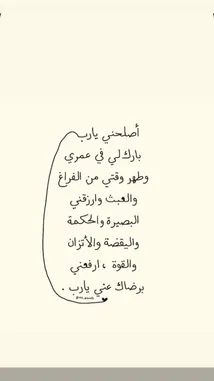 أصلحني يارب
بارك لي في عمري
وطهر وقتي من الفراغ
والعبث وارزقني
البصيرة والحكمة
واليقضة والأتزان
والقوة ، ارفعني
برضاك عني يارب .